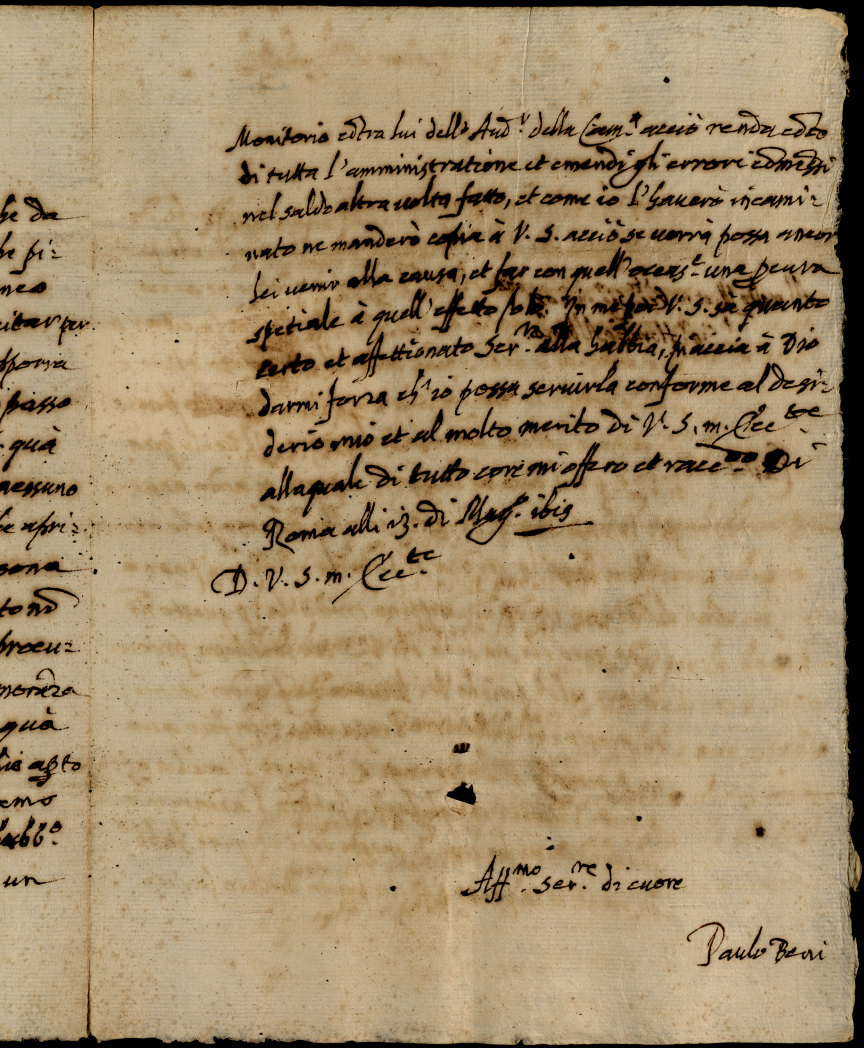 he da
he pi=
neo
citar per
passo
quà
nessuno
he apri=
sona
procu=
quà
emo
un
Monitorio cõtra lui dell'Aud.r della Cam.a acciò renda cõto
di tutta l'amministratione et emendi gli errori cõmessi
nel saldo altra volta fatto, et come io l'haverò incami=
nato ne manderò copia à V. S. acciò se vorrà possa ancor
lei venir alla causa, et far con quell'occas.e una
spetiale à quell'effetto V. S. sà quanto
certo et affettionato ser.re alla piaccia à Dio
darmi forza ch'io possa servirla conforme al desi=
derio mio et al molto merito di V. S. m. Ecc.te
alla quale di tutto core mi offero et racc.do Di
Roma alli 13. di Mag.o
D. V. S. m. Ecc.te
Aff.mo ser.re di cuore
Paulo Beni